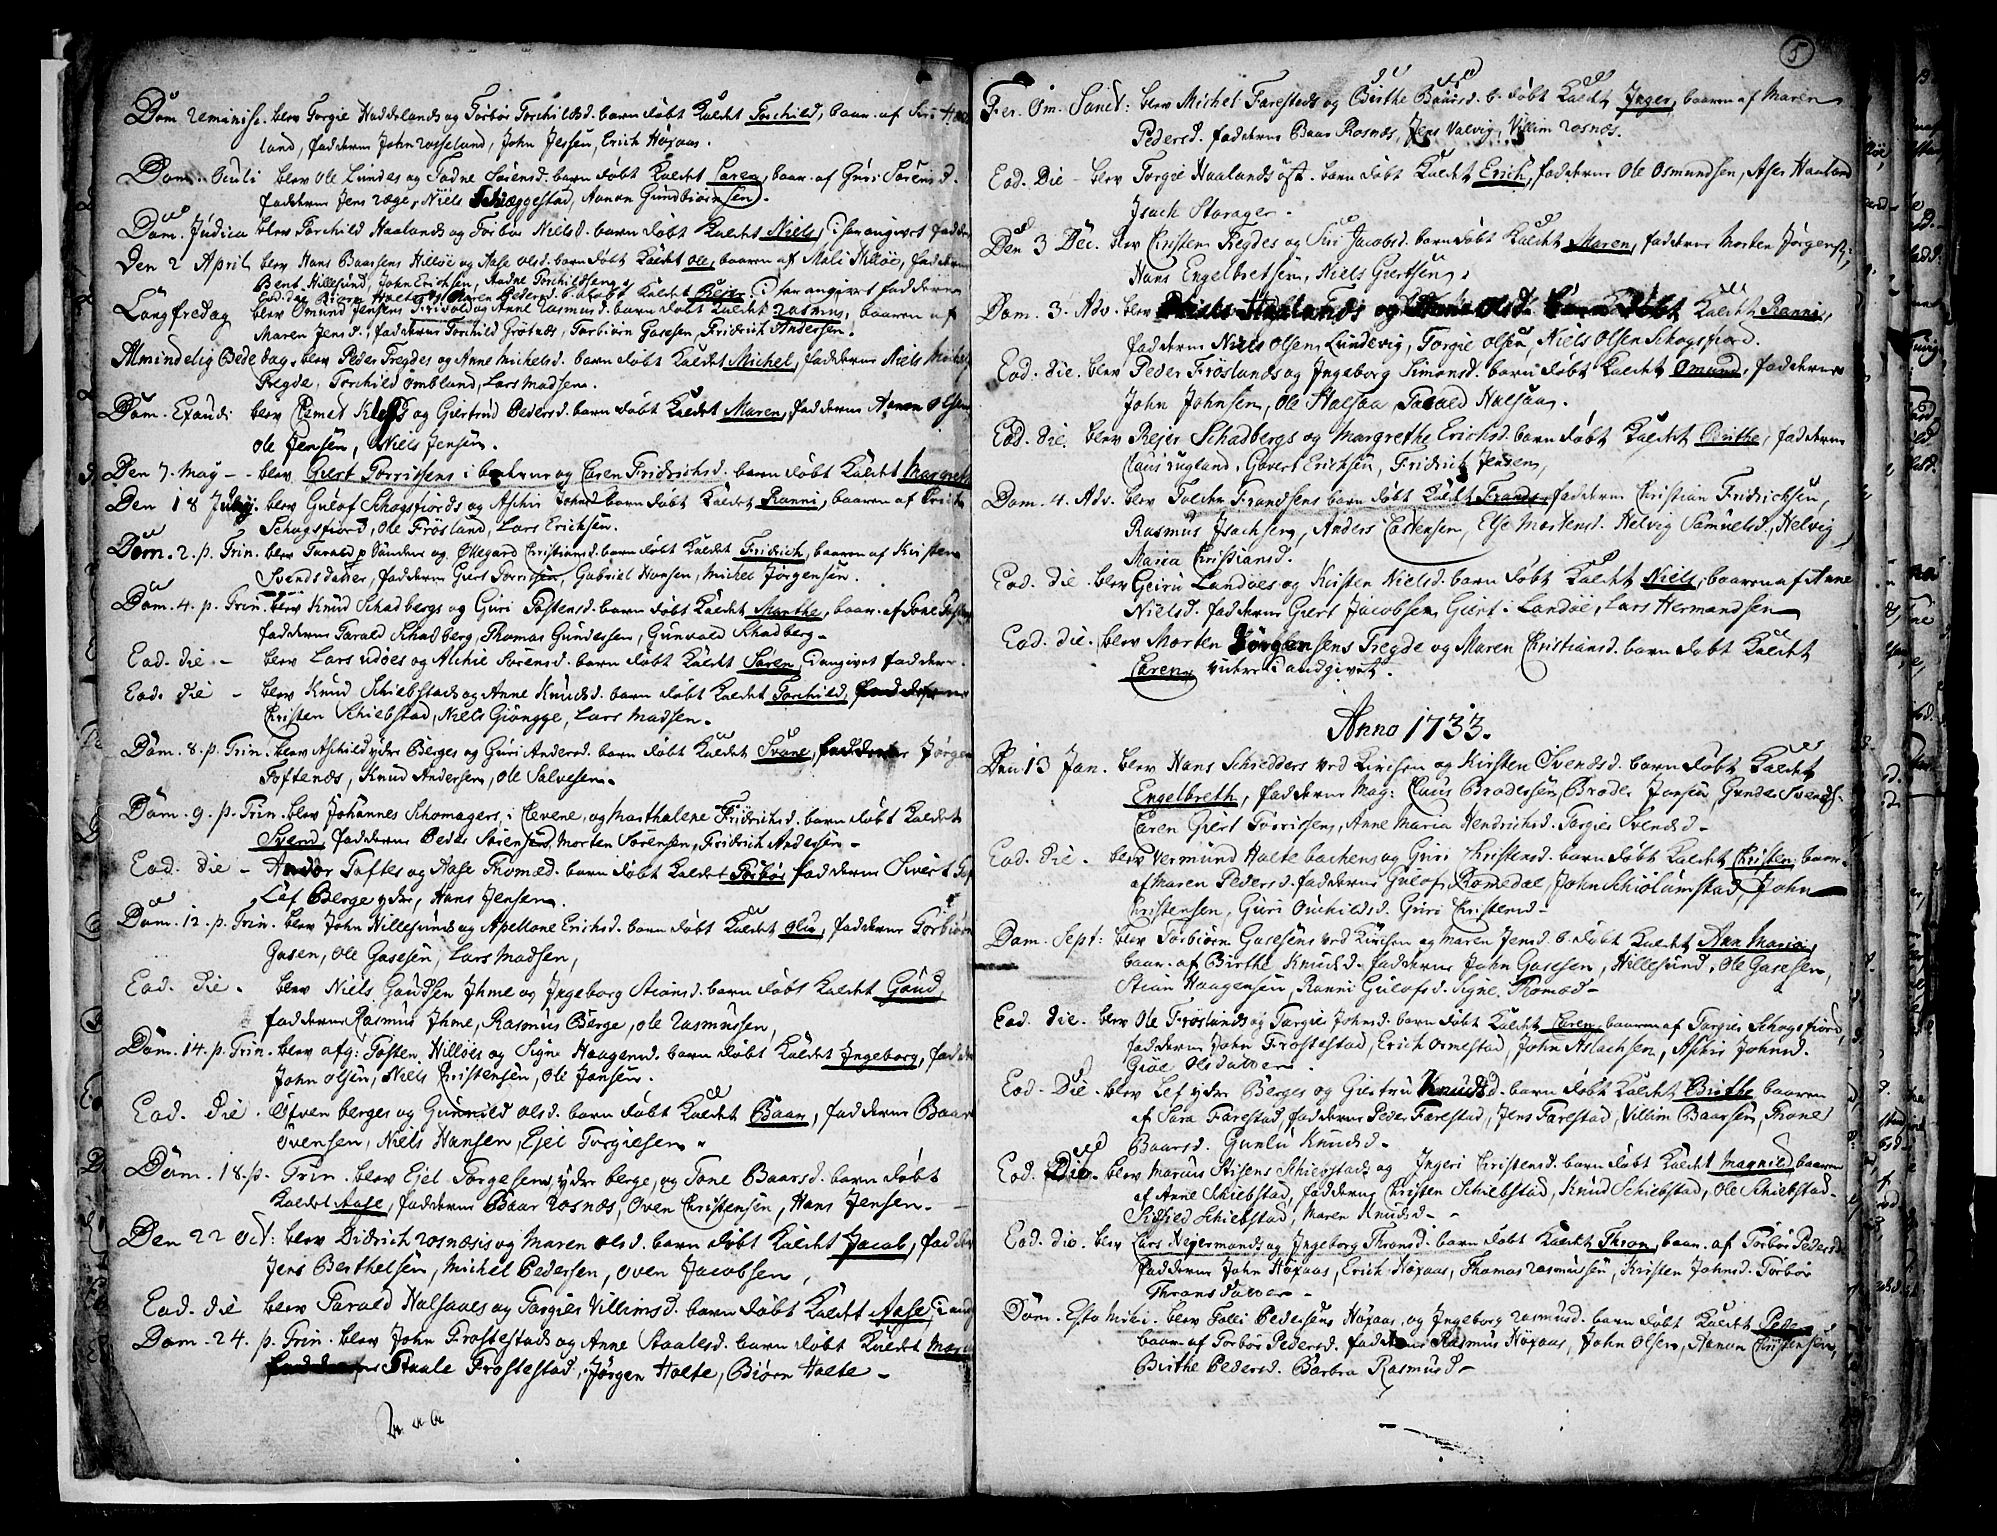 Dom Reminisc. blev Torgie Hadelands og Torbor Torchildsd. barn døbt Kaldet Torchild, baar. af Siri
land, fadderne John Rosseland, John Jessen, Erich Høxaas.
Dom. Oculi blev Ole Lundes og Tadne Sørensd. barn døbt Kaldet Caren, baar. af Guri Sørensd.
fadderne Jens Rege, Niels Schæggestad, Aanon Gundbiørnsen.
Dom. Judica blev Torchild Haalands og Torbor Nielsd. barn døbt Kaldet Niels, i
Den 2 April blev Hans Baarsens Hilløe og Aase Olsd. barn døbt Kaldet Ole, baaren af Mali Hilløe, fadderne
Bent Hillesund, John Erichsen, Aadne Torchildsen
Eod. die Biørn Holtes og Maren Pedersd. b. døbt Kaldet Rejer, angivet fadderne
Langfredag blev Omund Jensens og Anne Rasmusd. barn døbt Kaldet Rasmus, baaren af
Maren Jensd, fadderne Torchild Grotnes, Torbiørn Gasesen, Fridrich Andersen.
Almindelig Bededag blev Peder Tregdes og Anne Michelsd. barn døbt Kaldet Michel, fadderne Niels
Tregde, Torchild Ombland, Lars Madsen.
Dom. Exaudi blev og Giertrud Pedersd. barn døbt Kaldet Maren, fadderne Aanon Olsen
Ole Jensen, Niels Jensen.
Den 7. May - blev Giert Torrisens i og Caren Fridrichsd. barn døbt Kaldet Margrete
Den 18 July. blev Gulof Schogsfiords og Aschir Johnsd barn døbt Kaldet Ranni, baaren af
Schogsfiord, Ole Frøsland, Lars Erichsen.
Dom. 2. p. Trin. blev Tarald p Sundene og Ollegard Christiansd. barn døbt Kaldet Fridrich, baaren af Kirsten
Svendsdatter, fadderne Giert Torrisen, Gabriel Hansen, Michel Jørgensen.
Dom. 4. p. Trin. blev Knud Schadbergs og Guri Tostensd. barn døbt Kaldet Marthe, baar. af Tone
fadderne Tarald Schadberg, Thomas Gundersen, Gunvald Schadberg
Eod. die. - blev Lars Udøes og Alchie Sørensd. barn døbt Kaldet Søren, i angivet fadderne.
Eod. die - blev Knud Schiebstads og Anne Knudsd. barn døbt Kaldet Torchild, fadderne
Christen Schiebstad, Niels Giongge, Lars Madsen.
Dom. 8. p. Trin. blev Aschild ydre Berges og Guri Andersd. barn døbt Kaldet Svane, fadderne Jørgen
Toftenes, Knud Andersen, Ole Salvesen.
Dom. 9. p. Trin. blev Johannes Schomagers i Clevene, og Marthalene Fridrichsd. barn døbt Kaldet
Svend, fadderne Peder Sørensen, Morten Sørensen, Fridrich Andersen
Eod. die - Andor Toftes og Aase Thomæd. barn døbt Kaldet Torbor fadderne Sivert
Lef Berge ydre, Hans Jensen.
Dom. 12. p. Trin. blev John Hillesunds og Apellone Erichsd. barn døbt Kaldet Olu, fadderne Torbiørn
Gasen, Ole Gasesen, Lars Madsen,
Eod. die. blev Niels Gaudsen Jhme og Jngeborg Stiansd. barn døbt Kaldet Gaud,
fadderne Rasmus Jhme, Rasmus Berge, Ole Rasmussen,
Dom. 14. p. Trin. blev afg: Tosten Hilløes og Signe Haagensd. barn døbt Kaldet Jngeborg, fadderne
John Olsen, Niels Christensen, Ole Jansen.
Eod. Die. Ofven berges og Gunnild Olsd. barn døbt Kaldet Baar, fadderne Baar
Ovensen, Niels Hansen, Ejel Torgiesen.
Dom. 18. p. Trin. blev Ejel Torgesens ydre berge, og Tone Baarsd. barn døbt
Kaldet Aase, fadderne Baar Rosnes, Oven Christensen, Hans Jensen. -
Den 22 Oct: blev Didrich Rosnæsis og Maren Olsd. barn døbt Kaldet Jacob, fadderne
Jens Berthelsen, Michel Pedersen, Oven Jacobsen,
Eod. die blev Tarald Halsaaes og Torgier Villimsd. barn døbt Kaldet Aase,
Dom. 24. p. Trin. blev John Frostestads og Anne Staalesd. barn døbt Kaldet
fadderne Staale Frostestad, Jørgen Holte, Biørn Holte -
5
Fer. Om. Sanct: blev Michel Farestads og Birthe Baarsd. b. døbt Kaldet Jnger, baaren af Maren
Pedersd. fadderne Baar Rosnes, Jens Valvig, Villim Rosnes.
Eod. Die - blev Torgie Haalands øst. barn døbt Kaldet Erich, fadderne Ole Osmundsen, Aser Haaland
Jsach Storager.
Den 3 Dec. blev Christen Tregdes og Siri Jacobsd. barn døbt Kaldet Maren, fadderne Morten Jørgens.
Hans Engelbretsen, Niels Giertsen.
Dom. 3. Adv. blev Niels Haalands og Olsd. barn døbt Kaldet Ranni,
fadderne Niels Olsen Lundevig, Torgie Olsen, Niels Olsen Schogsfiord.
Eod. die. blev Peder Frøslands og Jngeborg Simonsd. barn døbt Kaldet Omund, fadderne
John Johnsen, Ole Halsaa, Tarald Halsaa.
Eod. die. blev Rejer Schadbergs og Margrethe Erichsd. barn døbt Kaldet Birthe, fadderne
Claus Rugland, Govert Erichsen, Fridrich Jensen,
Dom. 4. Adv. blev Tolchen Frandsens barn døbt Kaldet Frands, fadderne Christian Fridrichsen,
Rasmus Jsachsen, Anders Carstensen, Else Mortensd. Helvig Samuelsd. Helvig
Maria Christiansd.
Eod. die blev Geiru Landøes og Kirsten Nielsd. barn døbt Kaldet Niels, baaren af Anne
Nielsd. fadderne Giert Jacobsen, Giert i Landøe, Lars Hermandsen
Eod. die. blev Morten Jørgensens Tregde og Maren Christiansd. barn døbt Kaldet
Caren, videre i andgivet.
Anno 1733.
Den 13 Jan. blev Hans Schredders ved Kirchen og Kirsten Svendsd. barn døbt Kaldet
Engelbreth, fadderne Mag: Claus Brodersen, Broder Jansen, Gunder Svends-
Caren Giert Torrisens, Anne Maria Hendrichsd. Torgier Svendsd-
Eod. die. - blev Vermund Holte bachens og Guri Christensd. barn døbt Kaldet Christen baar-
af Maren Pedersd. fadderne Gulof Romedal, John Schiølumstad, John
Christensen, Guri Ouchildsd. Guri Christensd-
Dom. Sept: blev Torbiørn Gasesens ved Kirchen og Maren Jensd. b. døbt Kaldet Ann Maria,
baar. af Birthe Knudsd. fadderne John Gasesen, Hillesund, Ole Gasesen,
Stian Haagensen, Ranni Gulofsd. Signe Thomæd-
Eod. die. blev Ole Frøslands og Torgier Johnsd. barn døbt Kaldet Caren, baaren af Torgier Schogsfiord,
fadderne John Frostestad, Erich Ormestad, John Aslachsen, Aschir Johnsd.
Giøe Olsdatter.
Eod. Die blev Lef ydre Berges og Giertru Knudsd. barn døbt Kaldet Birthe baaren
af Sara Farestad, fadderne Peder Farestad, Jens Farestad, Villim Baarsen, Thone
Baarsd. Gunlu Knudsd-
Eod. Die. blev Marcus Stisens Schiebstads og Jngeri Christensd. barn døbt Kaldet Magnild baaren
af Anne Schiebstad, fadderne Christen Schiebstad, Knud Schiebstad, Ole Schiebstad.
Sidsed Schiebstad, Maren Knudsd- -
Eod. die. blev Lars Nejermands og Jngeborg Thronsd. barn døbt Kaldet Thron, baar. af Torbor Pedersd.
fadderne John Høxaas, Erich Høxaas, Thomas Rasmussen, Kirsten Johnsd. Torbor
Thronsdatter -
Dom. Esto Mihi. blev Tolli Pedersens Høxaas, og Jngeborg Rasmusd. barn døbt Kaldet Peder
baar. af Torbor Pedersd. fadderne Rasmus Høxaas, John Olsen, Aanon Christensen,
Birthe Pedersd. Barbra Rasmusd-